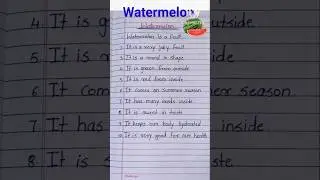 Watermelon
Watermelon
1. Watermelon is a fruit.
2. It is a very juicy fruit
3. It is a round in shape
4. It is green from outside
5. It is red from inside
6. It comes in summer season
7. It has many seeds inside
8. It is sweet in taste
9. It keeps our body hydrated
10. It is very good for our health
4. It is g
5. It is
6. It com
7. It has
8. It is s
outside
er season.
inside
te.